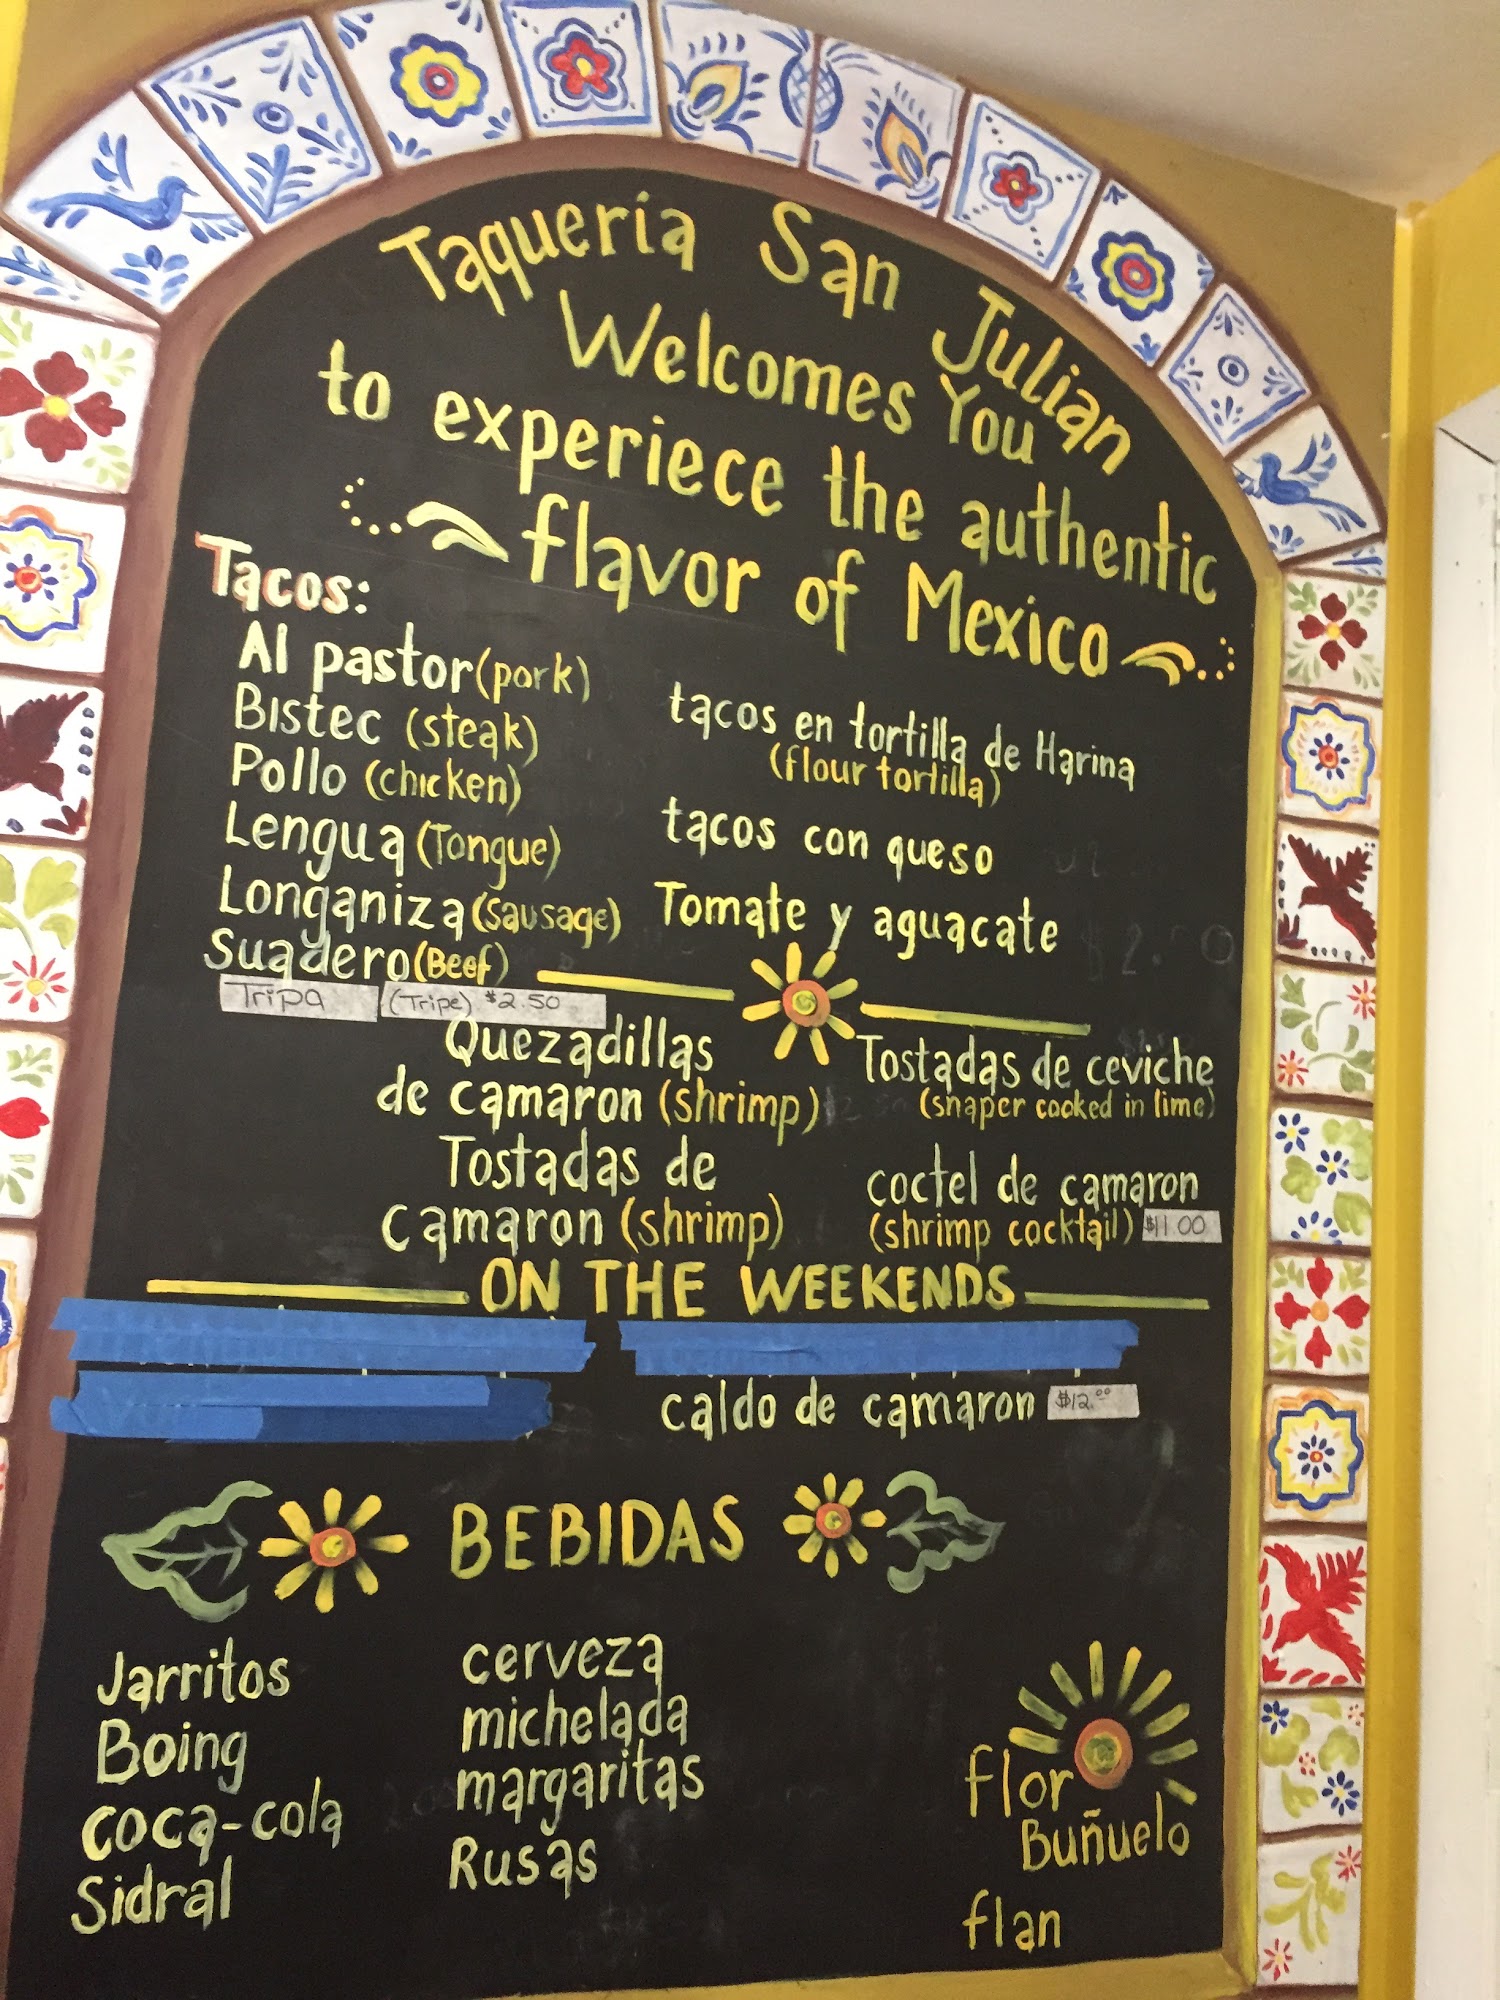 Taqueria San Julian
Welcomes You
to experiece the authentic
flavor of Mexico
Tacos:
Al pastor (pork)
Bistec (steak)
Pollo (chicken)
Lengua (Tongue)
Longaniza (Sausage)
Suadero (Beef)
Tripa (Tripe) $2.50
tacos en tortilla de Harina
(flour tortilla)
tacos con queso
Tomate y aguacate
Quezadillas
de camaron (shrimp)
Tostadas de
camaron (shrimp)
Tostadas de ceviche
(snaper cooked in lime)
coctel de camaron
(shrimp cocktail) $11.00
ON THE WEEKENDS
caldo de camaron $12.00
BEBIDAS
Jarritos
Boing
coca-cola
Sidral
cerveza
michelada
margaritas
Rusas
flor
Buñuelo
flan